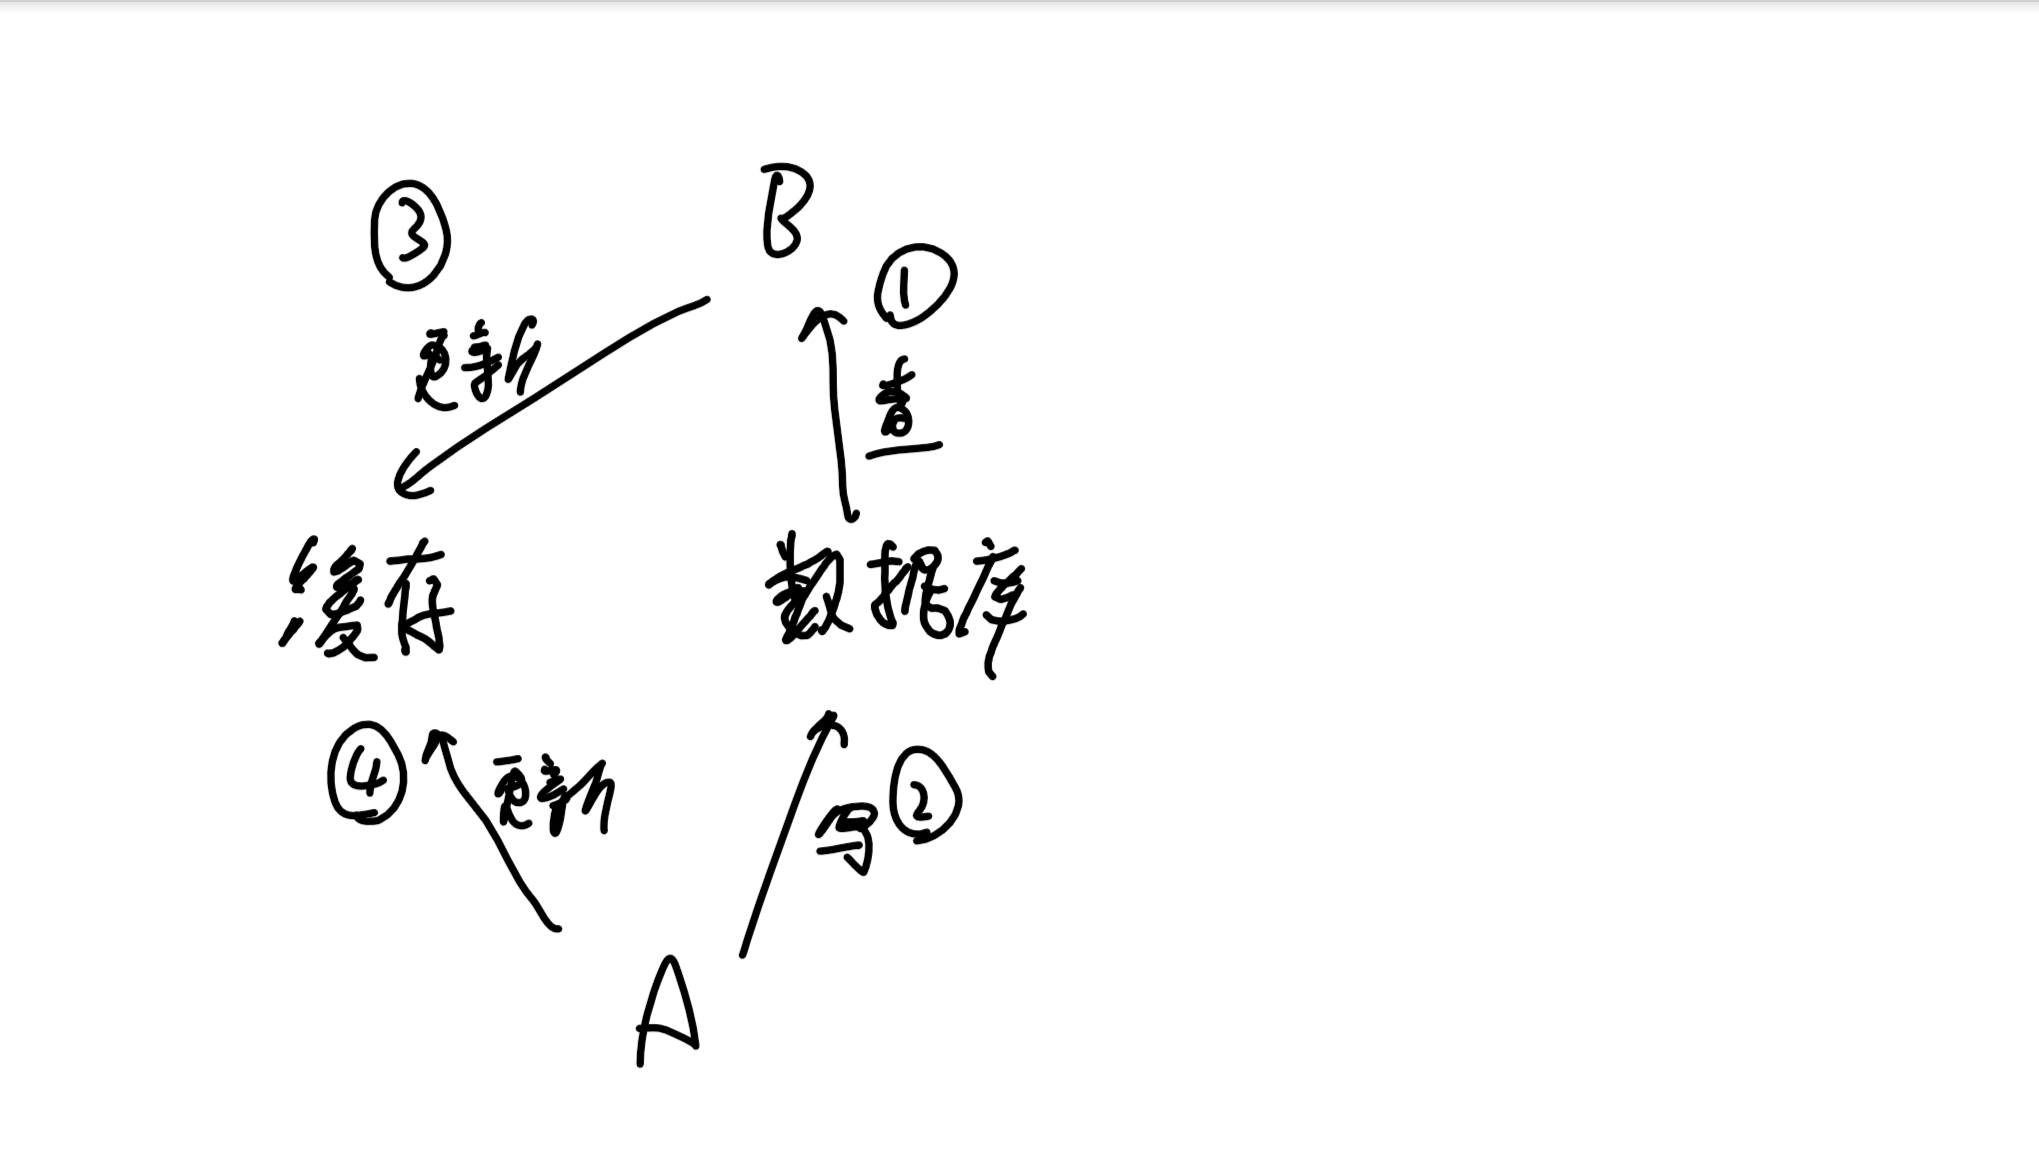 B
③
①
更新
查
缓存
数据库
④
更新
写②
A